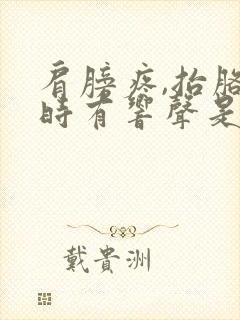 肩膀疼,抬胳
時有響聲是
戴貴洲